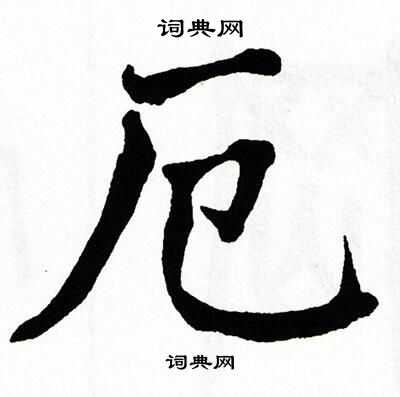 词典网
厄
词典网